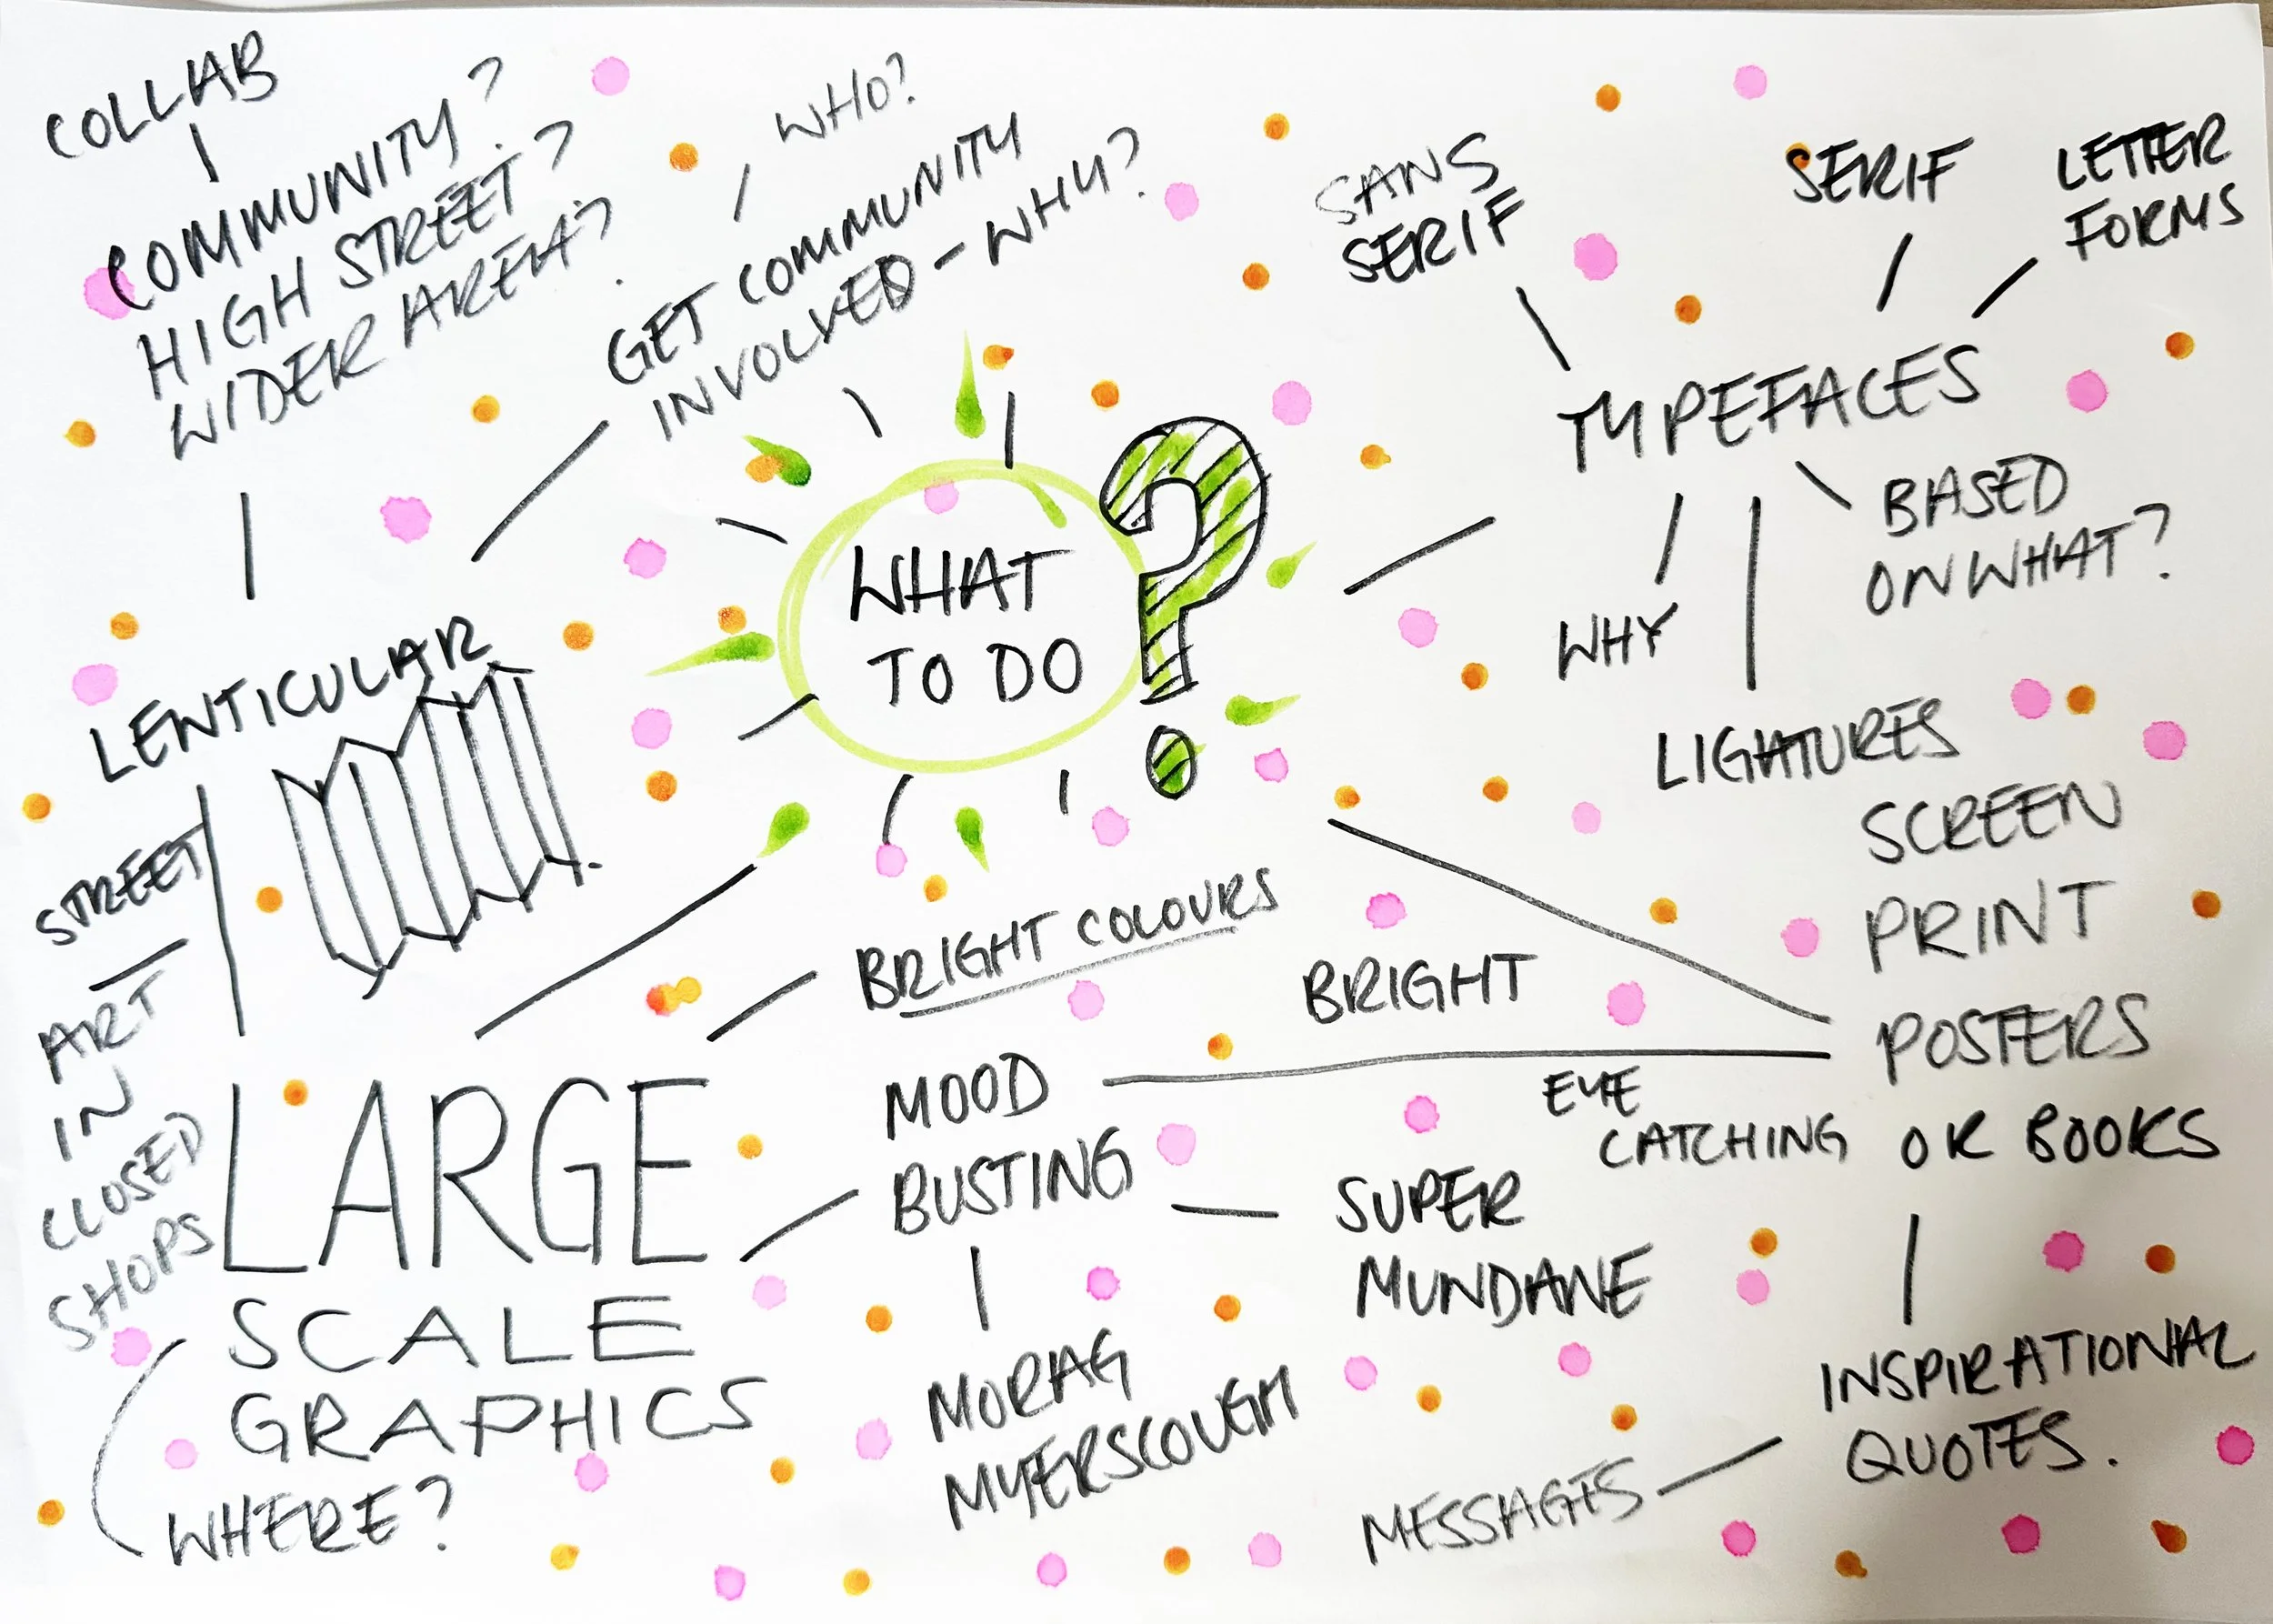 COLLAB
COMMUNITY?
HIGH STREET?
WIDER AREA?
WHO?
GET COMMUNITY
INVOLVED - WHY?
SANS
SERIF
SERIF
LETTER
FORMS
TYPEFACES
BASED
ON WHAT?
WHY
LIGATURES
WHAT
TO DO
?
LENTICULAR
STREET
ART
IN
CLOSED
SHOPS
LARGE
SCALE
GRAPHICS
WHERE?
BRIGHT COLOURS
MOOD
BUSTING
MORAG
MYERSCOUGH
SUPER
MUNDANE
BRIGHT
EYE
CATCHING
SCREEN
PRINT
POSTERS
OR BOOKS
INSPIRATIONAL
QUOTES.
MESSAGES